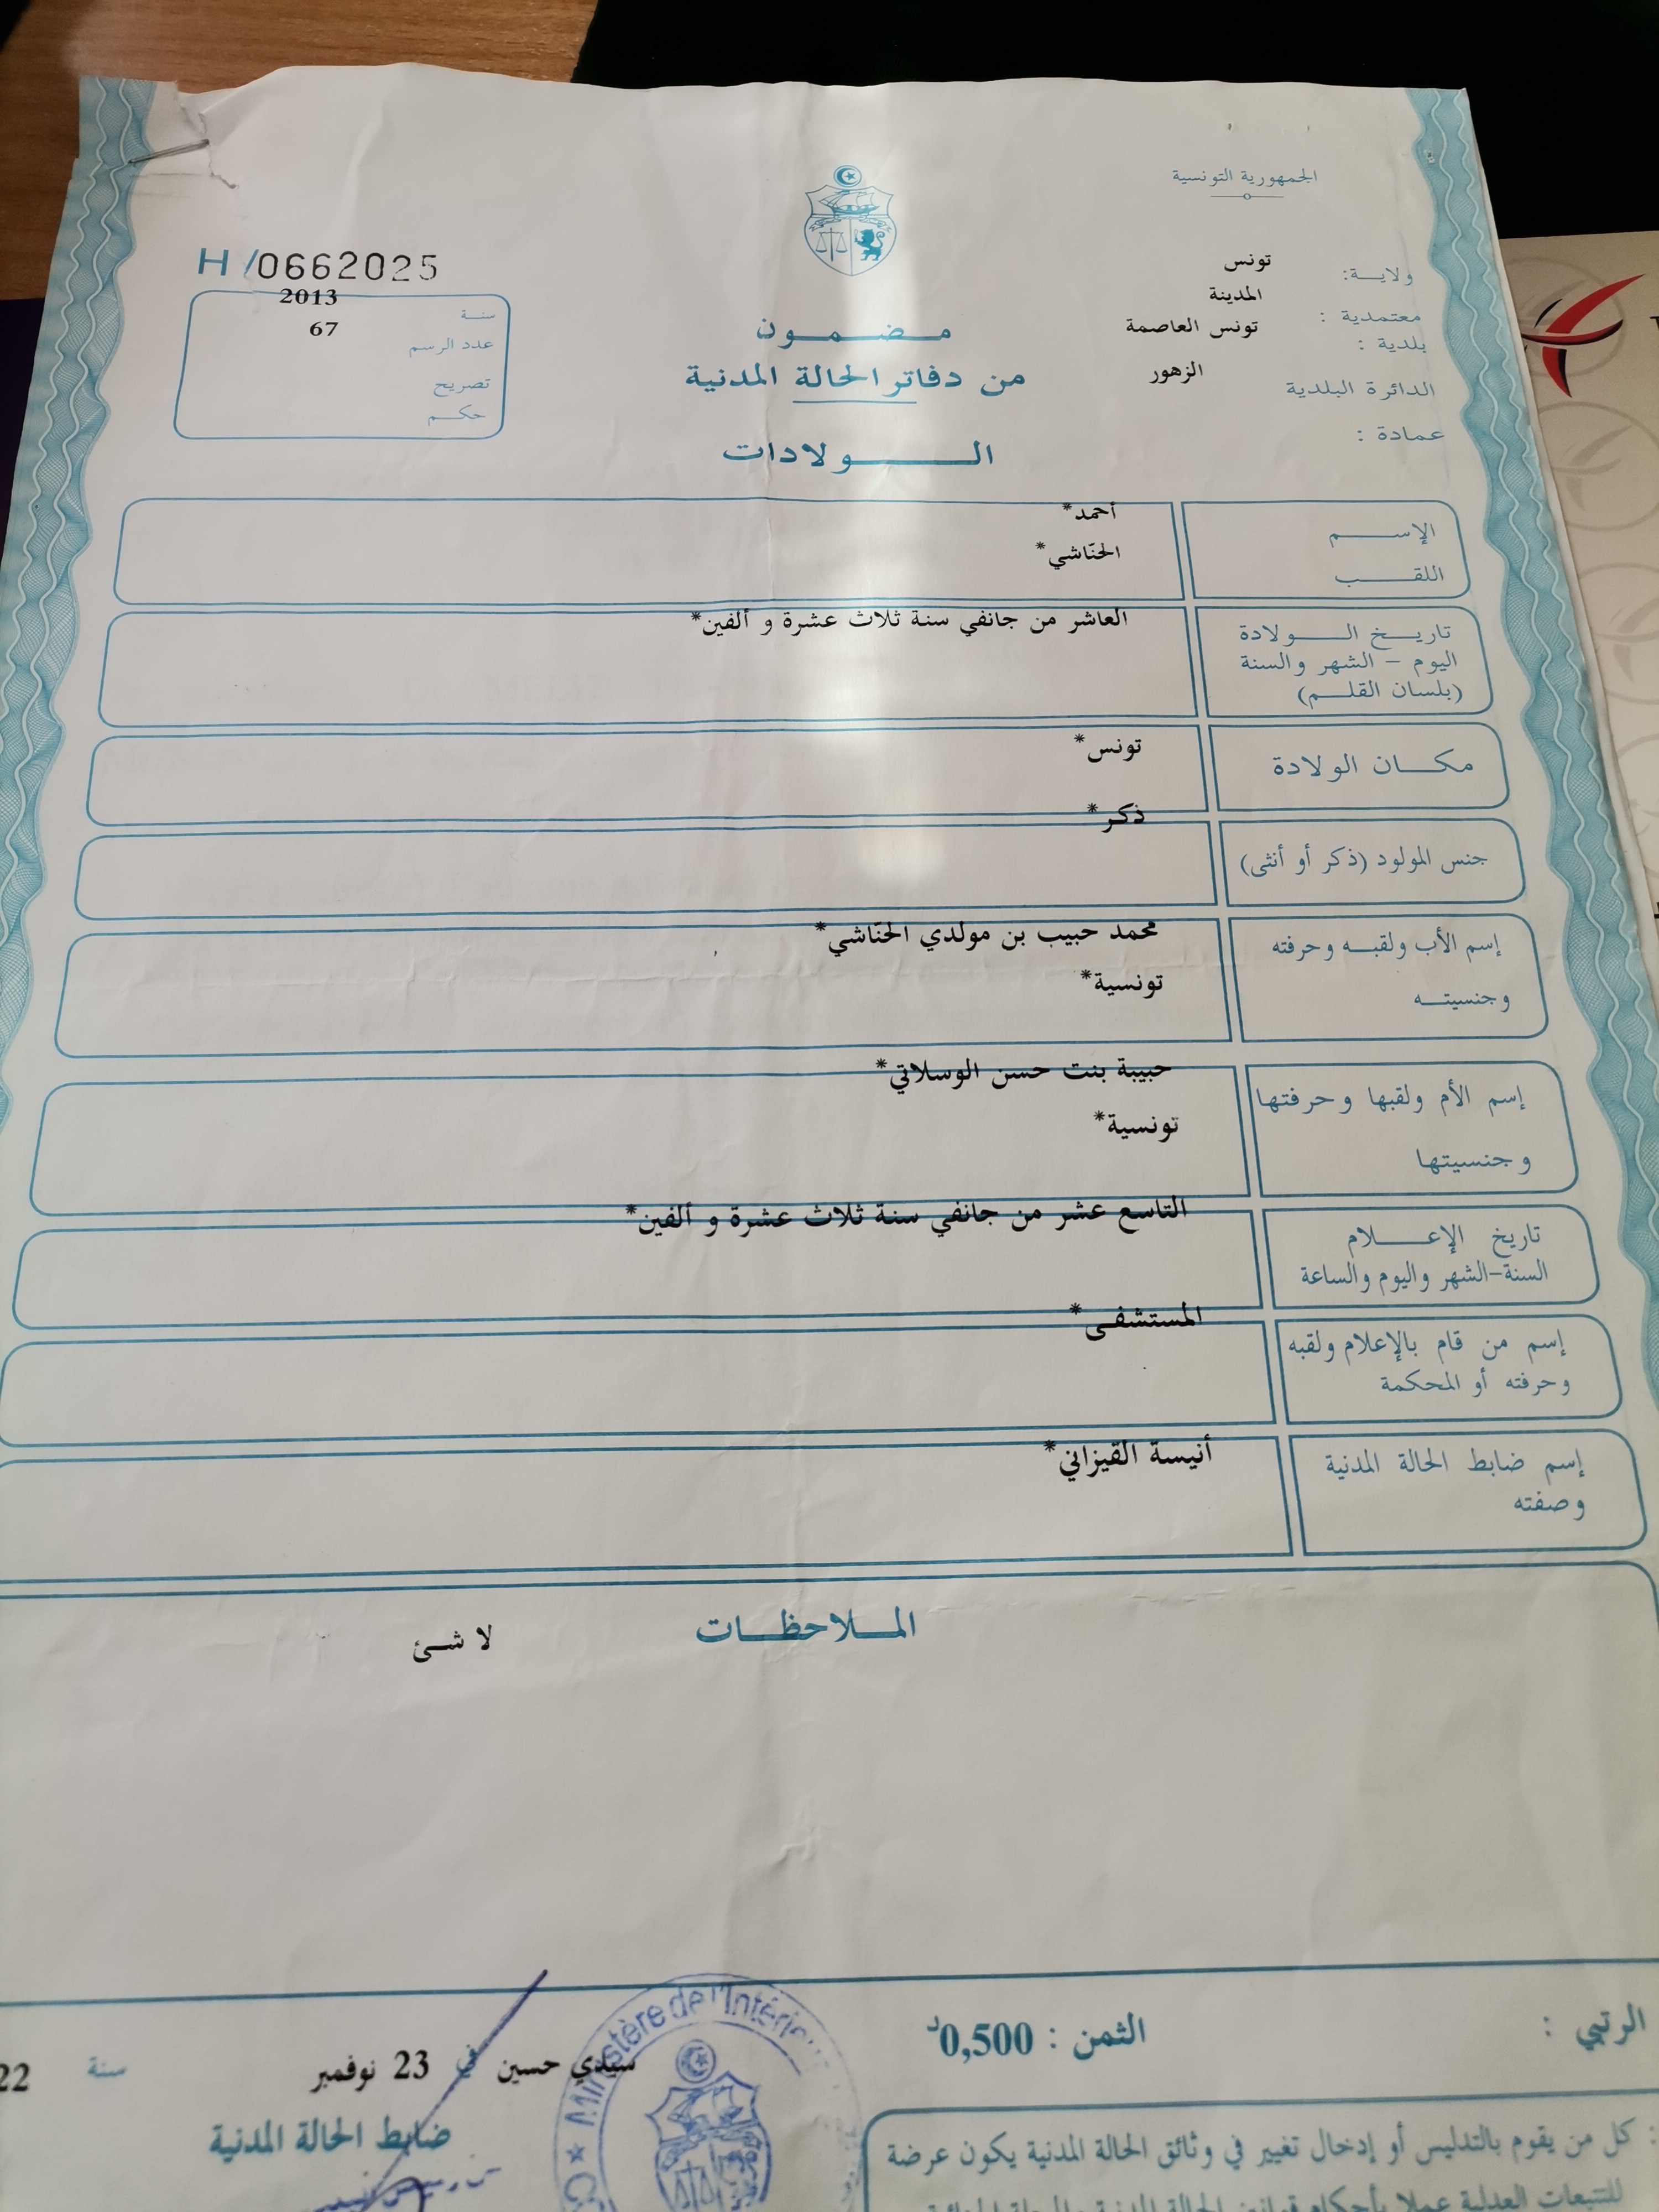 الجمهورية التونسية
ولاية: تونس
معتمدية : المدينة
بلدية : تونس العاصمة
الدائرة البلدية الزهور
عمادة :
H /0662025
سنة 2013
عدد الرسم 67
تصريح
حكم
مضمون
من دفاتر الحالة المدنية
الولادات
الإسم أحمد*
اللقب الحنّاشي*
تاريخ الولادة العاشر من جانفي سنة ثلاث عشرة و ألفين*
اليوم - الشهر والسنة
(بلسان القلم)
مكان الولادة تونس*
جنس المولود (ذكر أو أنثى) ذكر*
إسم الأب ولقبه وحرفته محمد حبيب بن مولدي الحنّاشي*
وجنسيته تونسية*
إسم الأم ولقبها وحرفتها حبيبة بنت حسن الوسلاتي*
وجنسيتها تونسية*
تاريخ الإعلام التاسع عشر من جانفي سنة ثلاث عشرة و ألفين*
السنة-الشهر واليوم والساعة
إسم من قام بالإعلام ولقبه المستشفى*
وحرفته أو المحكمة
إسم ضابط الحالة المدنية أنيسة القيزاني*
وصفته
الملاحظات
لا شئ
الرتبي :
الثمن : 0,500د
سيدي حسين في 23 نوفمبر سنة 22
ضابط الحالة المدنية
Ministère de l'Intérieur
كل من يقوم بالتدليس أو إدخال تغيير في وثائق الحالة المدنية يكون عرضة
للتتبعات العدلية عملا بأحكام قوانين الحالة المدنية والمجلة الجنائية